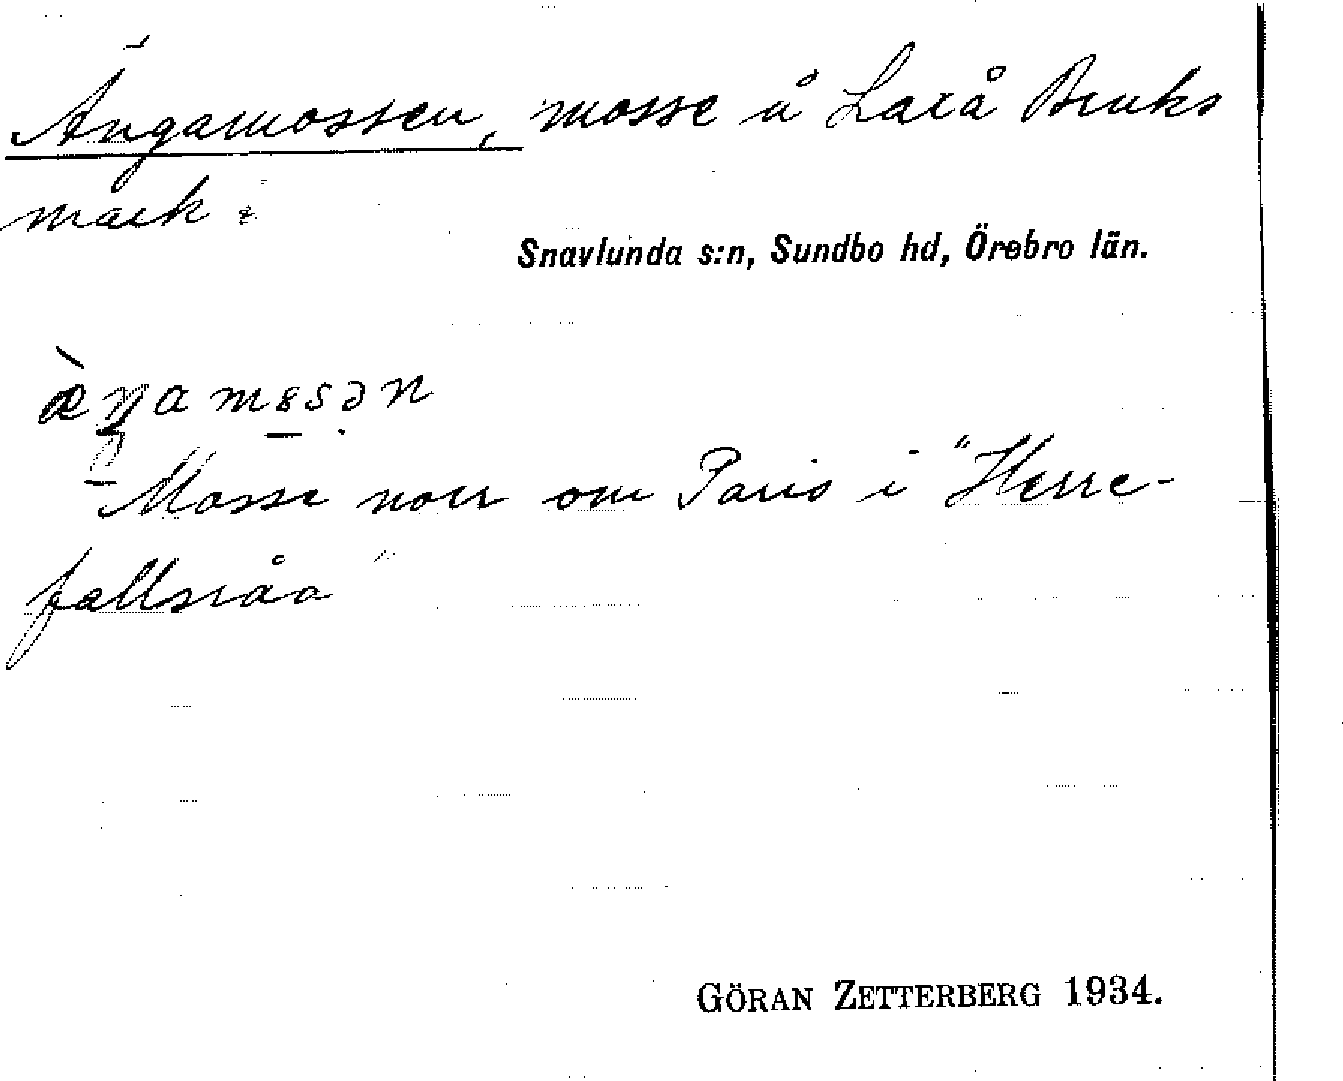 Ängamossen, mosse å Laxå Bruks
mark i
Snavlunda s:n, Sundbo hd, Örebro län.
Mosse norr om Paris i "Herre-
fallsråa"
GÖRAN ZETTERBERG 1934.